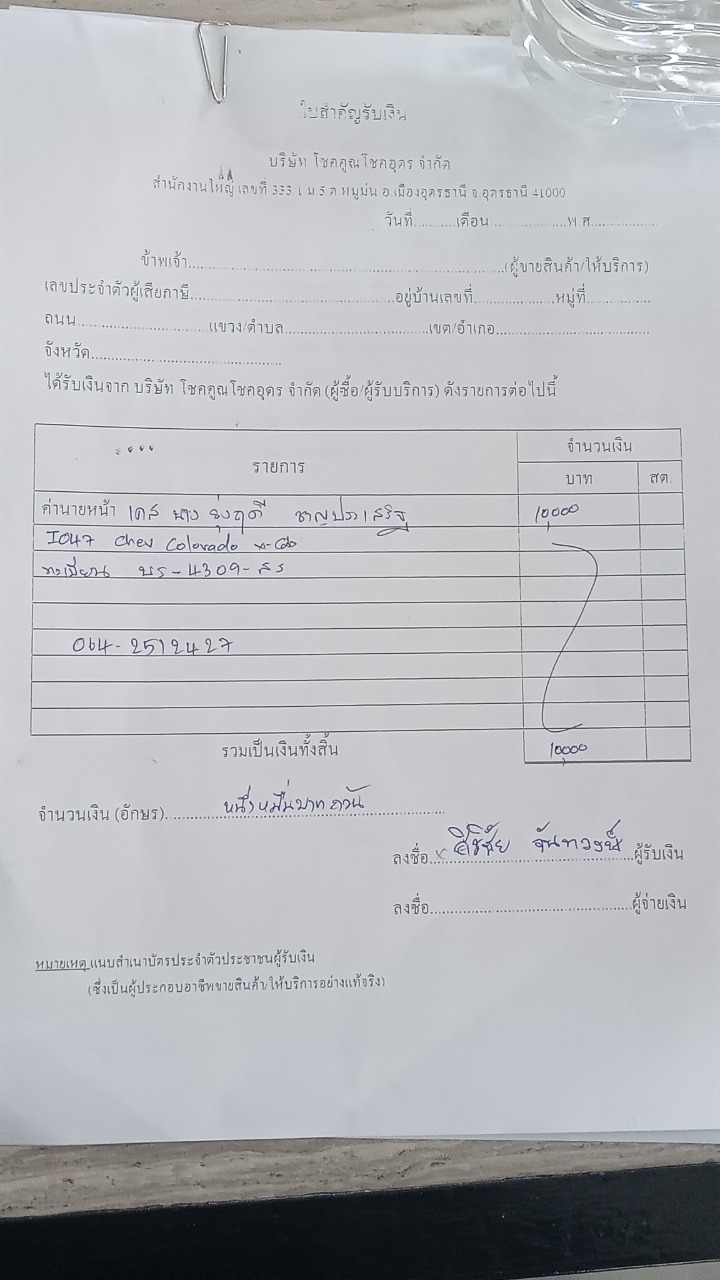 ใบสำคัญรับเงิน
บริษัท โชคคูณโชคอุดร จำกัด
สำนักงานใหญ่ เลขที่ 333 ม.5 ต.หมูม่น อ.เมืองอุดรธานี จ.อุดรธานี 41000
วันที่..........เดือน....................พ.ศ................
ข้าพเจ้า................................................................................(ผู้ขายสินค้า/ให้บริการ)
เลขประจำตัวผู้เสียภาษี....................................................อยู่บ้านเลขที่....................หมู่ที่................
ถนน.................................แขวง/ตำบล....................................เขต/อำเภอ.......................................
จังหวัด...............................................
ได้รับเงินจาก บริษัท โชคคูณโชคอุดร จำกัด (ผู้ซื้อ/ผู้รับบริการ) ดังรายการต่อไปนี้
รายการ จำนวนเงิน
บาท สต.
ค่านายหน้า เคส นาง 10,000
I047 Chev Colorado x-cab
ทะเบียน บร-4309-สร
064-2512427
รวมเป็นเงินทั้งสิ้น 10,000
จำนวนเงิน (อักษร)..........หนึ่งหมื่นบาทถ้วน..........
ลงชื่อ x ศิริชัย จันทวงษ์ ผู้รับเงิน
ลงชื่อ..................................................ผู้จ่ายเงิน
หมายเหตุ แนบสำเนาบัตรประจำตัวประชาชนผู้รับเงิน
(ซึ่งเป็นผู้ประกอบอาชีพขายสินค้า/ให้บริการอย่างแท้จริง)